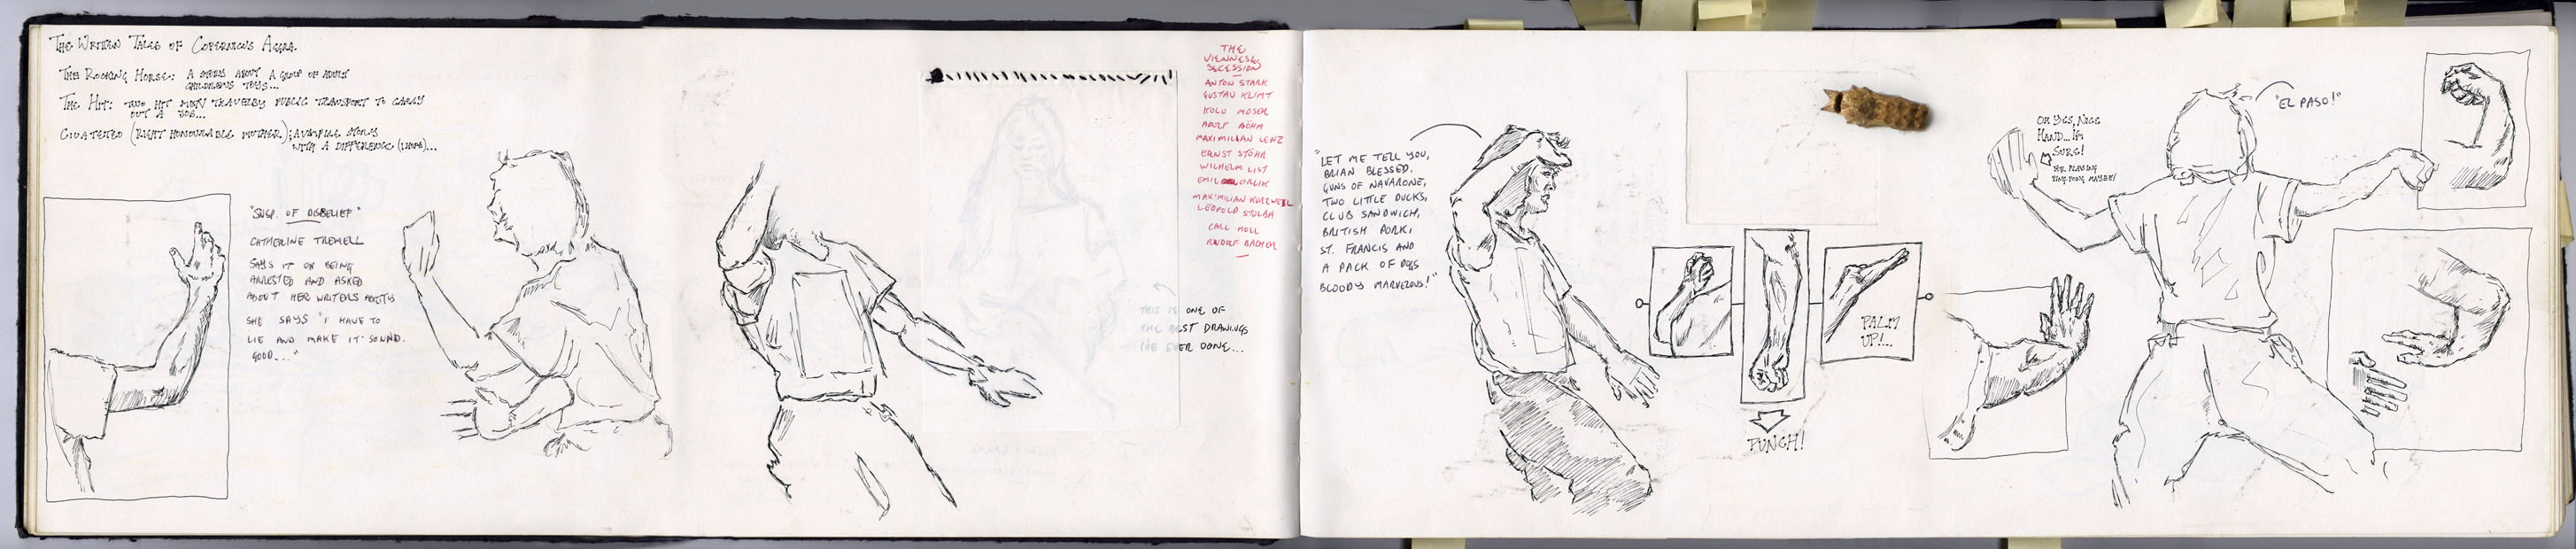 The Written Tales of Copernicus Agora.
The Rocking Horse: A story about a group of adult
childrens toys...
The Hit: Two hit men travel by public transport to carry
out a job...
(Right Honourable Mother); A vampire story
with a difference
"Susp. of Disbelief"
Catherine Tremell
says it on being
arrested and asked
about her writers ability
she says "I have to
lie and make it sound
good..."
The
Viennese
Secession
Anton Stark
Gustav Klimt
Kolo Moser
Adolf Böhm
Maximilian Lenz
Ernst Stöhr
Wilhelm List
Emil Orlik
Maximilian Kurzweil
Leopold Stolba
Carl Moll
Rudolf Bacher
This is one of
the best drawings
I've ever done...
"Let me tell you,
Brian Blessed.
Guns of Navarone,
Two little ducks,
Club sandwich,
British pork,
St. Francis and
a pack of dogs
bloody marvelous!"
Palm
up!...
Punch!
Oh yes, nice
hand... I'm
sure!
for playing
ping pong maybe!
"El Paso!"